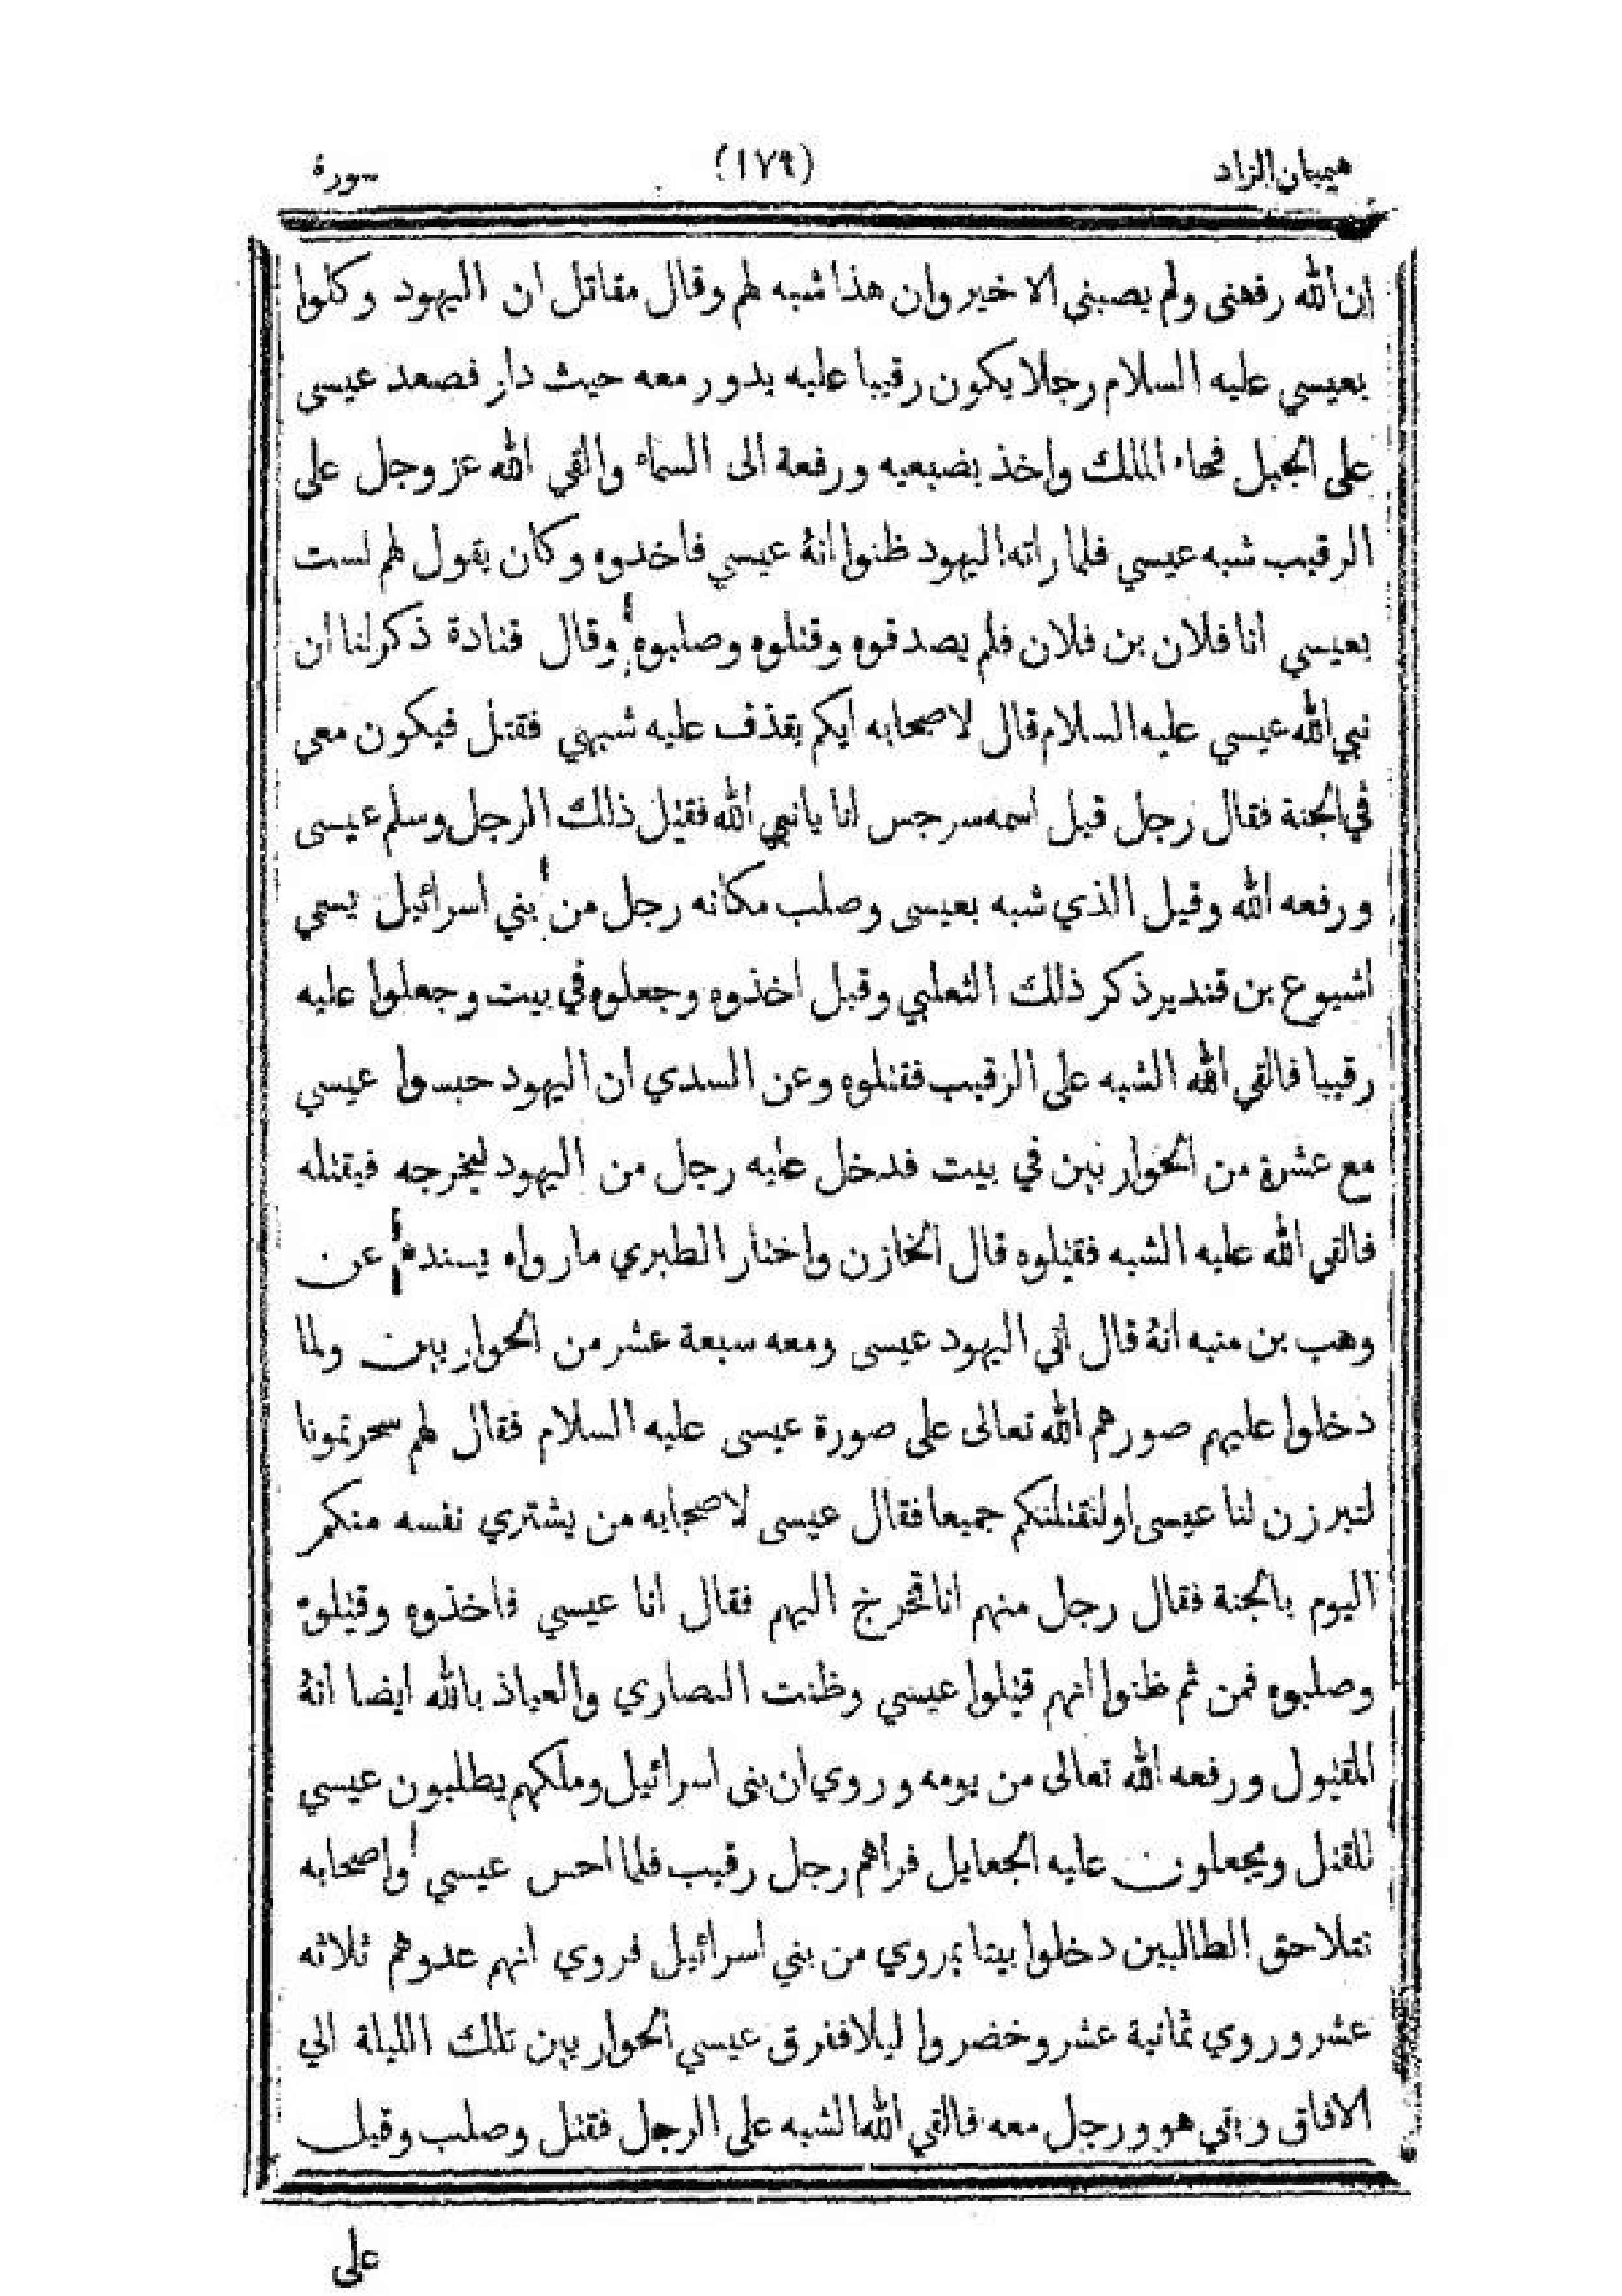 هيميان الزاد (١٧٩) سورة
ان الله رفعنى ولم يصبنى الا خير وان هذا شبه لهم وقال مقاتل ان اليهود وكلوا
بعيسي عليه السلام رجلا يكون رقيبا عليه يدور معه حيث دار فصعد عيسى
على الجبل فجاء الملك واخذ بضبعيه ورفعة الى السماء والقي الله عز وجل على
الرقيب شبه عيسي فلما راته اليهود ظنوا انهُ عيسي فاخدوه وكان يقول لهم لست
بعيسي انا فلان بن فلان فلم يصدقوه وقتلوه وصلبوه وقال قتادة ذكر لنا ان
نبي الله عيسي عليه السلام قال لاصحابه ايكم يقذف عليه شبهي فقتل فيكون معي
في الجنة فقال رجل قيل اسمه سرجس انا يا نبي الله فقتل ذلك الرجل وسلم عيسى
ورفعه الله وقيل الذي شبه بعيسى وصلب مكانه رجل من بني اسرائيل يسمي
اشيوع بن قندير ذكر ذلك الثعلبي وقيل اخذوه وجعلوه في بيت وجعلوا عليه
رقيبا فالقي الله الشبه على الرقيب فقتلوه وعن السدي ان اليهود حبسوا عيسي
مع عشرة من الحواريين في بيت فدخل عليه رجل من اليهود ليخرجه فيقتله
فالقي الله عليه الشبه فقتلوه قال الخازن واختار الطبري ما رواه بسنده عن
وهب بن منبه انهُ قال اتي اليهود عيسى ومعه سبعة عشر من الحواريين ولما
دخلوا عليهم صورهم الله تعالى على صورة عيسى عليه السلام فقال لهم سحرتمونا
لتبرزن لنا عيسى او لنقتلنكم جميعا فقال عيسى لاصحابه من يشتري نفسه منكم
اليوم بالجنة فقال رجل منهم انا فخرج اليهم فقال انا عيسي فاخذوه وقتلوه
وصلبوه فمن ثم ظنوا انهم قتلوا عيسي وظنت النصاري والعياذ بالله ايضا انهُ
المقتول ورفعه الله تعالى من يومه وروي ان بنى اسرائيل وملكهم يطلبون عيسي
للقتل ويجعلون عليه الجعايل فراهم رجل رقيب فلما احس عيسي واصحابه
بتلاحق الطالبين دخلوا بيتا بمروي من بني اسرائيل فروي انهم عدوهم ثلاثه
عشر وروي ثمانية عشر وحضروا ليلا ففرق عيسي الحواريين تلك الليلة الي
الافاق وبقي هو ورجل معه فالقي الله الشبه على الرجل فقتل وصلب وقيل
على